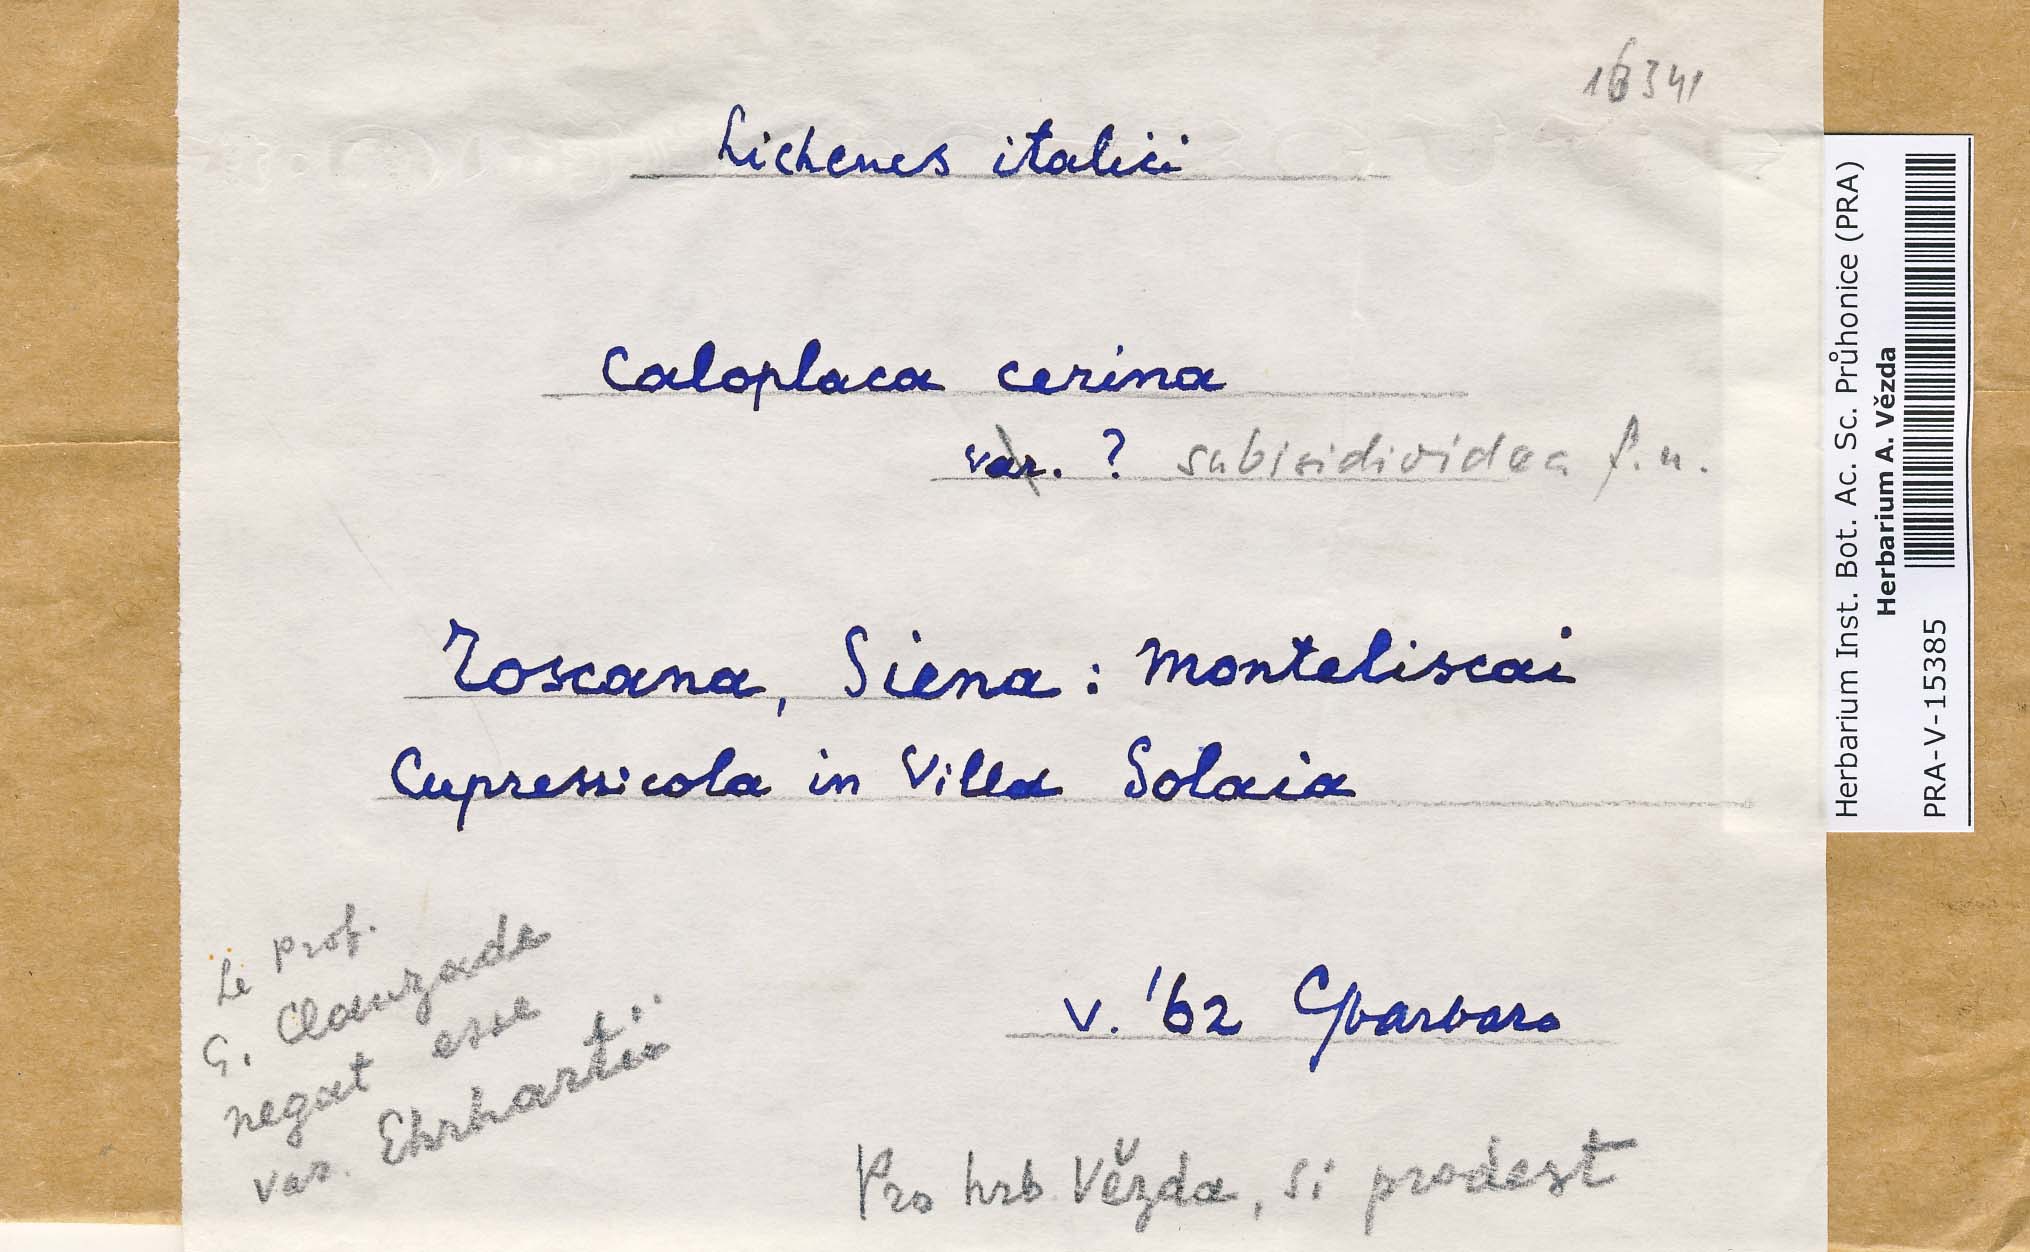 16341
Lichenes italici
Caloplaca cerina
var. ? subisidioidea f. n.
Toscana, Siena: Monteliscai
Cupressicola in Villa Solaia
V. '62 GBarbaro
Le Prof.
G. Clauzade
negat esse
var. Ehrhartii
Pro hrb Vězda, si prodest
Herbarium Inst. Bot. Ac. Sc. Průhonice (PRA)
Herbarium A. Vězda
PRA-V-15385